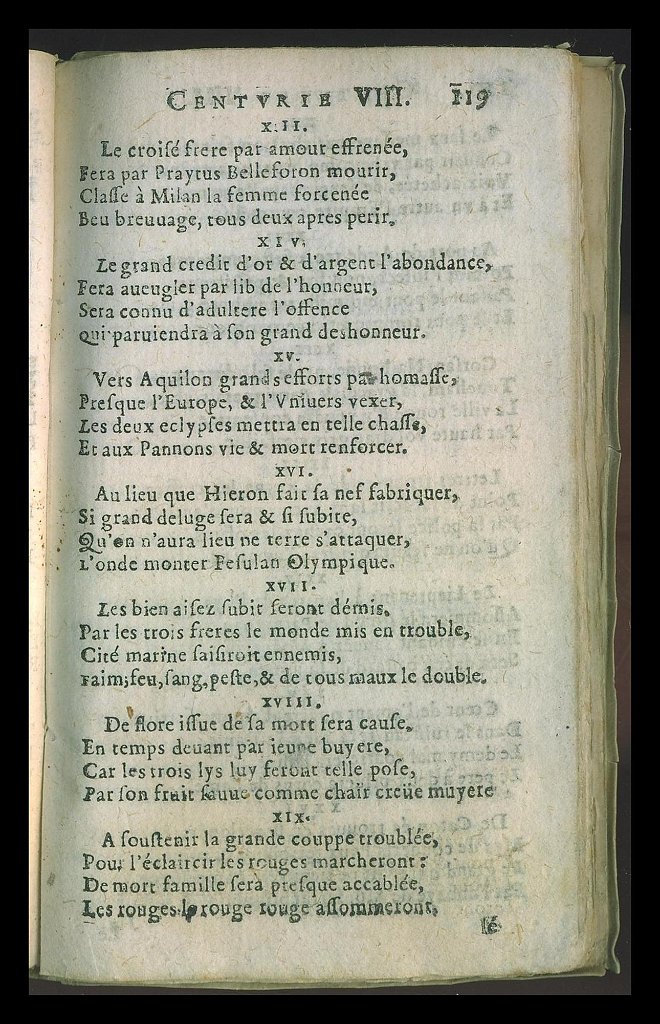 CENTVRIE VIII. 119
XIII.
Le croisé frere par amour effrenée,
Fera par Praytus Belleforon mourir,
Classe à Milan la femme forcenée
Beu breuuage, tous deux apres perir.
XIV.
Le grand credit d'or & d'argent l'abondance,
Fera aueugler par lib de l'honneur,
Sera connu d'adultere l'offence
qui paruiendra à son grand deshonneur.
XV.
Vers Aquilon grands efforts par homasse,
Presque l'Europe, & l'Vniuers vexer,
Les deux eclypses mettra en telle chasse,
Et aux Pannons vie & mort renforcer.
XVI.
Au lieu que Hieron fait sa nef fabriquer,
Si grand deluge sera & si subite,
Qu'on n'aura lieu ne terre s'attaquer,
L'onde monter Fesulan Olympique.
XVII.
Les bien aisez subit seront démis.
Par les trois freres le monde mis en trouble,
Cité marine saisiroit ennemis,
Faim, feu, sang, peste, & de tous maux le double.
XVIII.
De flore issue de sa mort sera cause,
En temps deuant par ieune buyere,
Car les trois lys luy feront telle pose,
Par son fruit sauue comme chair creüe muyere
XIX.
A soustenir la grande couppe troublée,
Pour l'éclaircir les rouges marcheront:
De mort famille sera presque accablée,
Les rouges le rouge rouge assommeront.